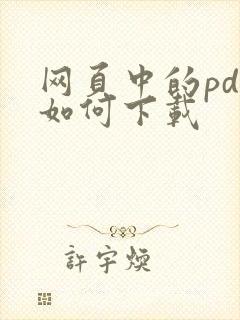 网页中的pd
如何下载
許宇煐